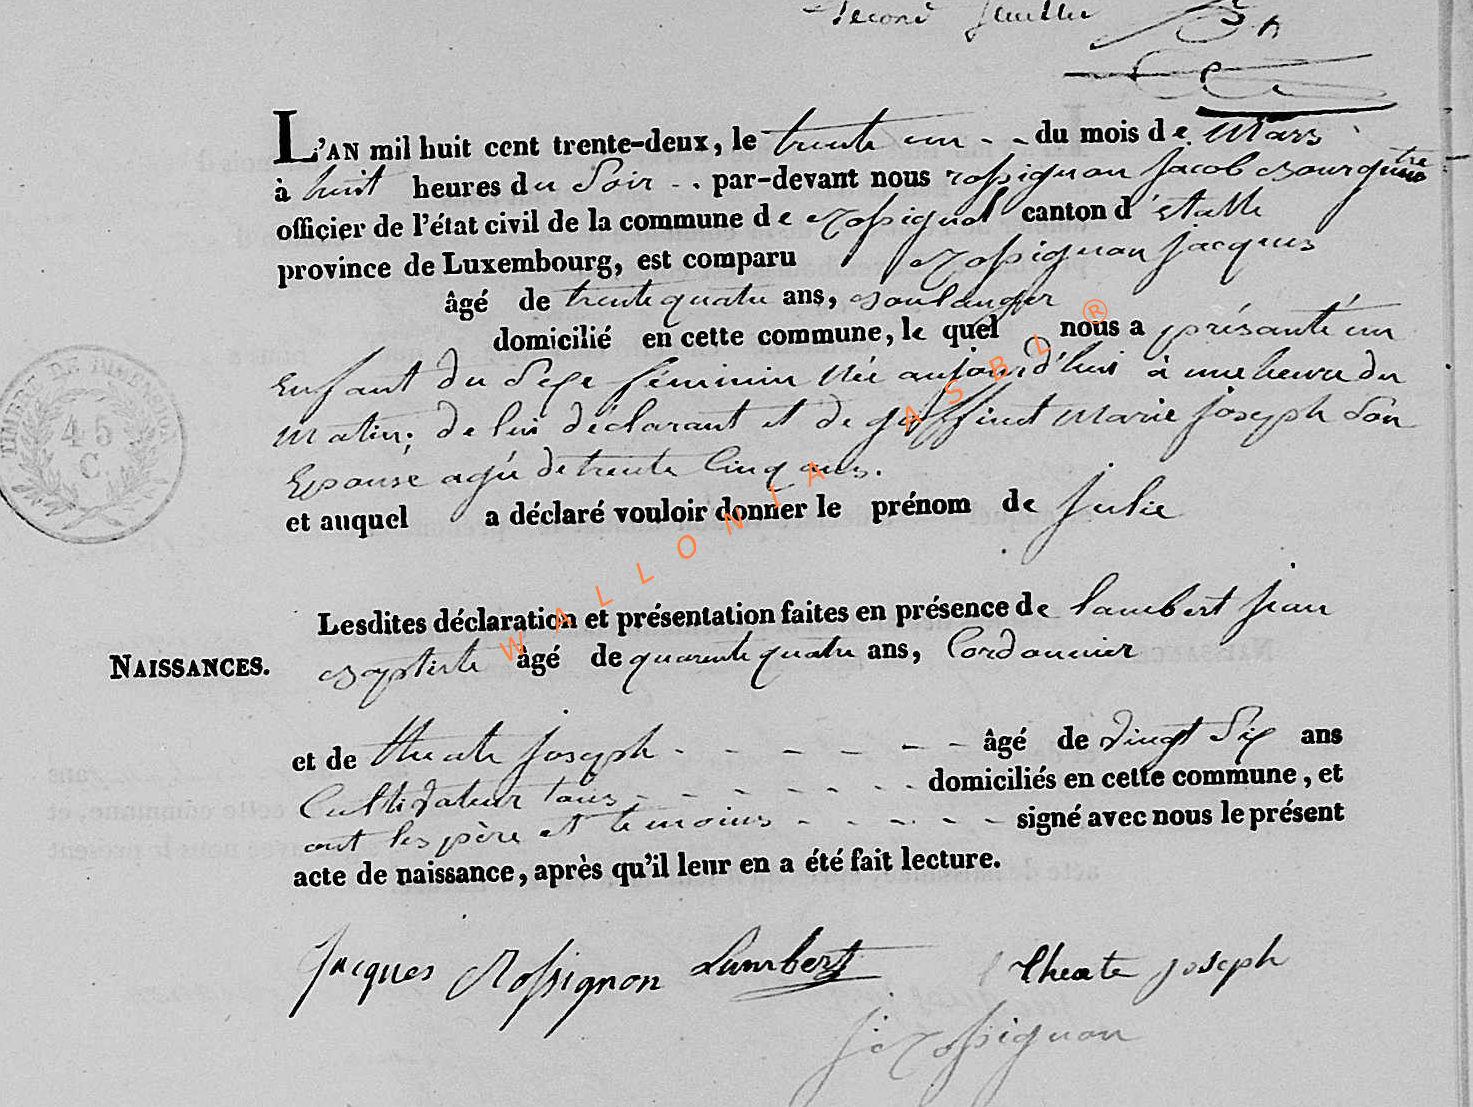 second feuillet
L'AN mil huit cent trente-deux, le trente un - - du mois de Mars
à huit heures du Soir - . par-devant nous rossignon Jacob Bourgmestre
officier de l'état civil de la commune de rossignol canton d'étalle
province de Luxembourg, est comparu rossignon jacques
âgé de trente quatre ans, Boulanger
domicilié en cette commune, le quel nous a présanté un
Enfant du Sexe féminin Née aujourd'hui à une heure du
Matin; de lui déclarant et de goffinet Marie Joseph Son
Epouse agée de trente Cinq ans.
et auquel a déclaré vouloir donner le prénom de Julie
Lesdites déclaration et présentation faites en présence de lambert Jean
NAISSANCES.
Baptiste âgé de quarente quatre ans, Cordonnier
et de theate Joseph - - - - - - - âgé de vingt Six ans
Cultivateur tous - - - - - - - domiciliés en cette commune, et
ont les père et temoins - - - - - signé avec nous le présent
acte de naissance, après qu'il leur en a été fait lecture.
Jacques Rossignon Lambert theate joseph
J: rossignon
TIMBRE DE DIMENSION
45
C.
WALLONIA ASBL ®